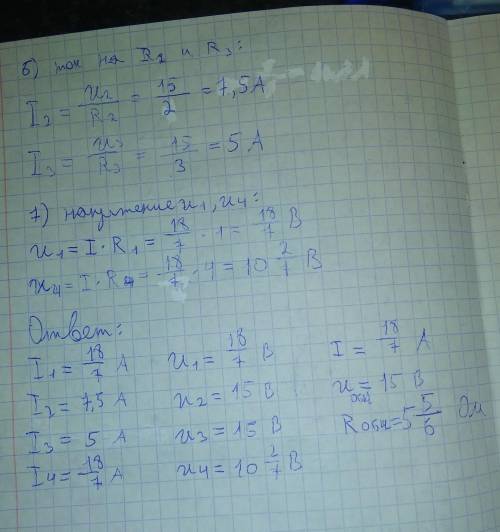 6) ток на R2 и R3:
I2 = u2/R2 = 15/2 = 7,5 А
I3 = u3/R3 = 15/3 = 5 А
7) напряжение u1, u4:
u1 = I · R1 = 18/7 · 1 = 18/7 В
u4 = I · R4 = 18/7 · 4 = 10 2/7 В
Ответ:
I1 = 18/7 А u1 = 18/7 В I = 18/7 А
I2 = 7,5 А u2 = 15 В u общ = 15 В
I3 = 5 А u3 = 15 В R общ = 5 5/6 Ом
I4 = 18/7 А u4 = 10 2/7 В